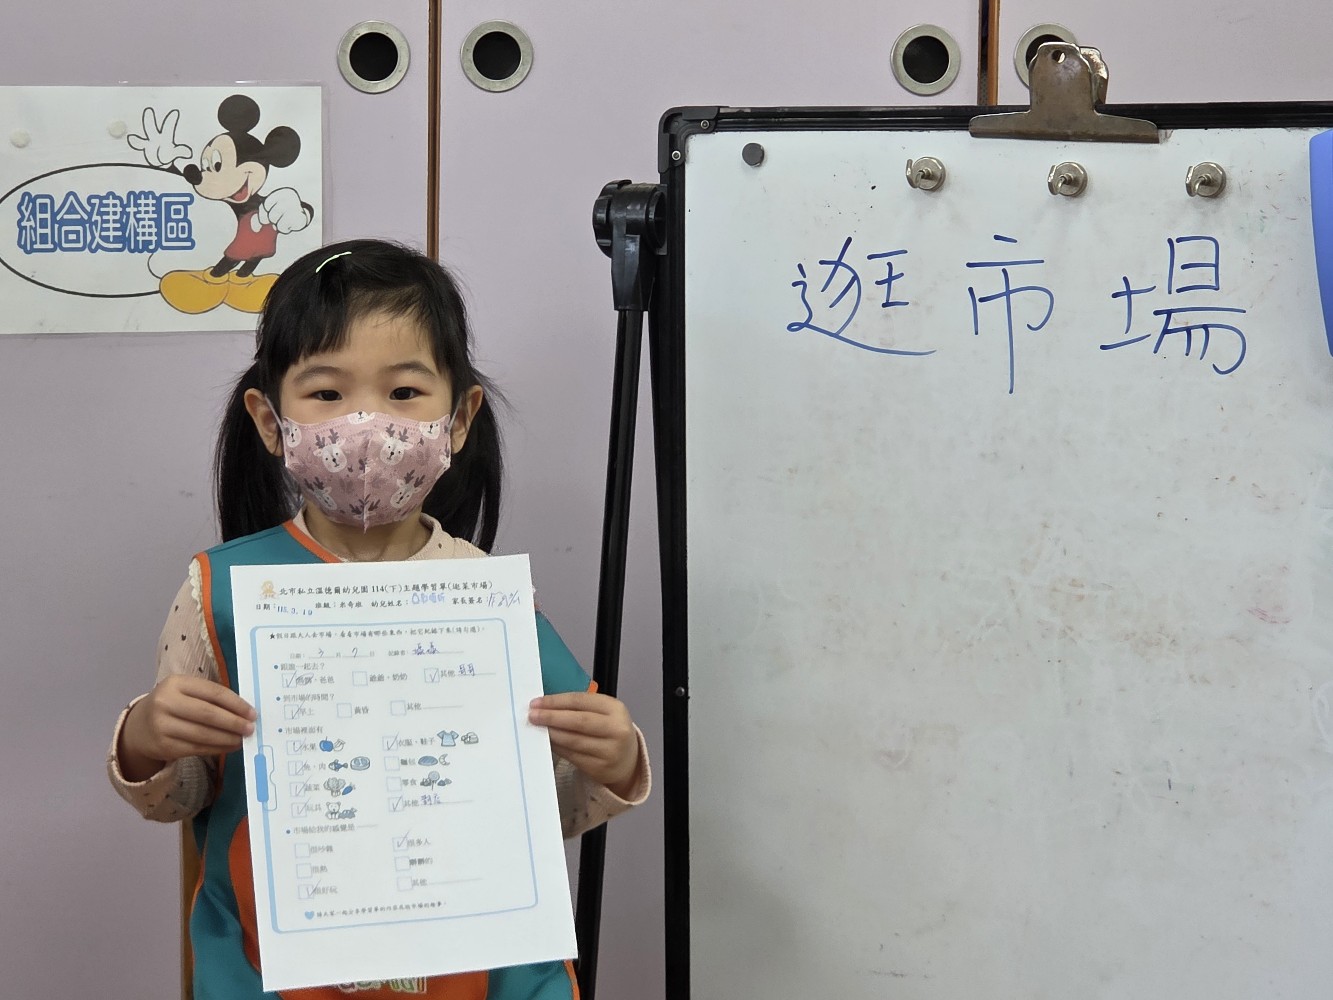 組合建構區
逛市場
北市私立溫德爾幼兒園 114(下)主題學習單(逛菜市場)
日期： 班級： 幼兒姓名： 家長簽名：
★假日跟大人去市場，看看市場有哪些東西，把它紀錄下來(請勾選)。
日期： 3 月 7 日 紀錄者：
● 跟誰一起去？
✓媽媽、爸爸 □爺爺、奶奶 ✓其他
● 到市場的時間？
✓早上 □黃昏 □其他
● 市場裡面有
✓水果 ✓衣服、鞋子
✓魚、肉 □麵包
✓蔬菜 □零食
✓玩具 ✓其他
● 市場給我的感覺是
□很吵雜 ✓很多人
□很熱 □髒髒的
✓很好玩 □其他